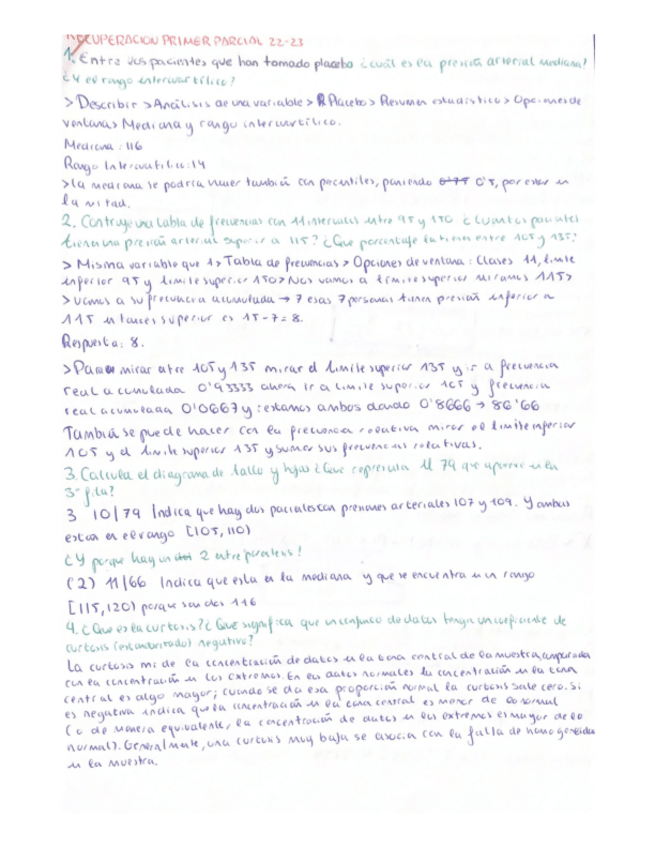 RECUPERACION PRIMER PARCIAL 22-23
1. Entre los pacientes que han tomado placebo ¿cuál es la presión arterial mediana?
¿Y el rango intercuartílico?
> Describir > Análisis de una variable > Placebo > Resumen estadístico > Opciones de
ventana > Mediana y rango intercuartílico.
Mediana: 116
Rango Intercuartílico: 14
> La mediana se podría hacer también con percentiles, poniendo 0'5, por estar en
la mitad.
2. Contruye una tabla de frecuencias con 11 intervalos entre 95 y 150 ¿Cuántos pacientes
tienen una presión arterial superior a 115? ¿Que porcentaje la tienen entre 105 y 135?
> Misma variable que 1 > Tabla de frecuencias > Opciones de ventana: Clases 11, límite
inferior 95 y límite superior 150 > Nos vamos a límite superior miramos 115 >
> vamos a su frecuencia acumulada → 7 esas 7 personas tienen presión inferior a
115 entonces superior es 15-7=8.
Respuesta: 8.
> Para mirar entre 105 y 135 mirar el límite superior 135 y ir a frecuencia
real acumulada 0'93333 ahora ir a límite superior 105 y frecuencia
real acumulada 0'0667 y restamos ambos dando 0'8666 → 86'66
También se puede hacer con la frecuencia relativa mirar el límite inferior
105 y el límite superior 135 y sumar sus frecuencias relativas.
3. Calcula el diagrama de tallo y hojas ¿Que representa el 79 que aparece en la
3ª fila?
3 10/79 Indica que hay dos pacientes con presiones arteriales 107 y 109. Y ambos
estan en el rango [105, 110)
¿Y porque hay un 2 entre parentesis?
(2) 11/66 Indica que esta en la mediana y que se encuentra en un rango
[115, 120) porque son dos 116
4. ¿Que es la curtosis? ¿Que significa que un conjunto de datos tenga un coeficiente de
curtosis (estandarizado) negativo?
La curtosis mide la concentración de datos en la zona central de la muestra, comparada
con la concentración en los extremos. En los datos normales la concentración en la zona
central es algo mayor; cuando se da esa proporción normal la curtosis sale cero. Si
es negativa indica que la concentración en la zona central es menor de lo normal
(o de manera equivalente, la concentración de datos en los extremos es mayor de lo
normal). Generalmente, una curtosis muy baja se asocia con la falta de homogeneidad
en la muestra.